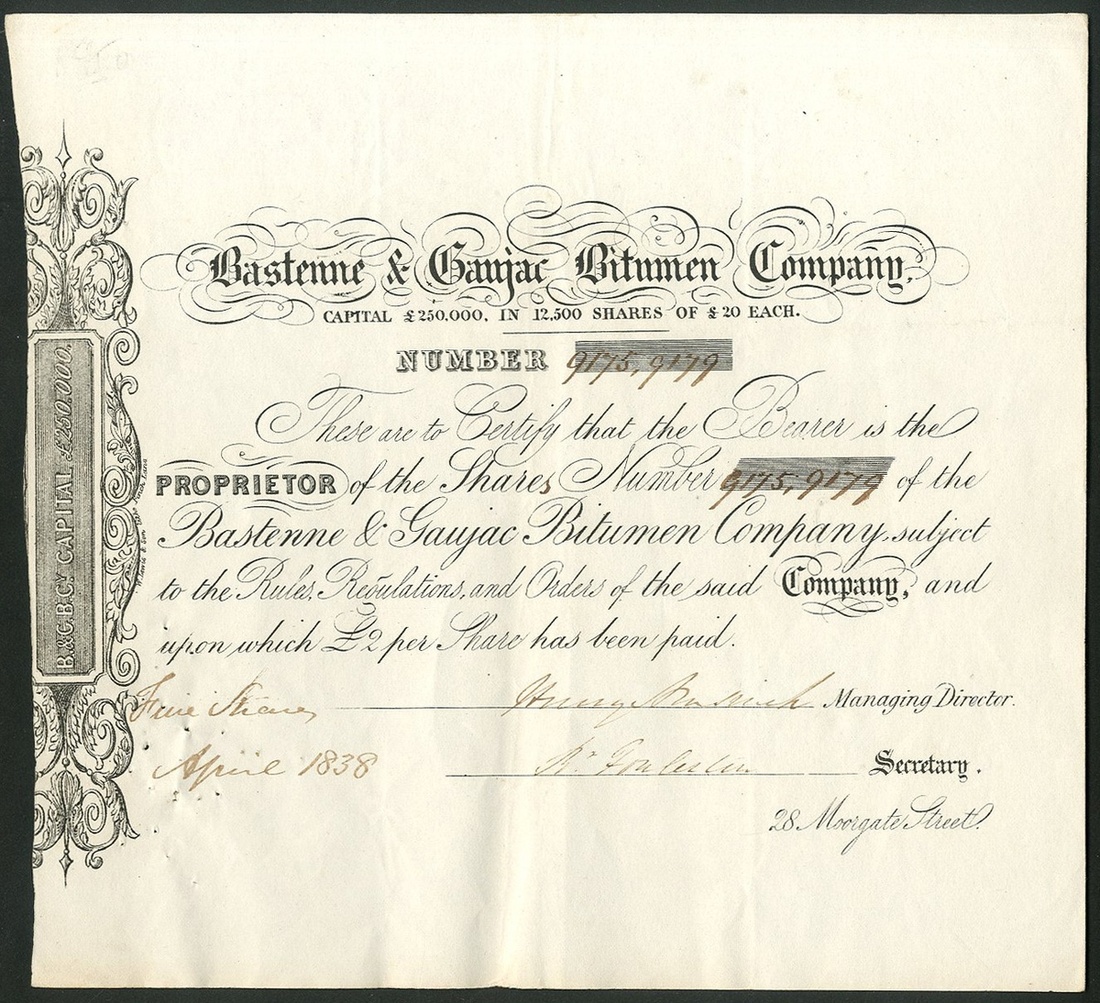 Bastenne & Gaujac Bitumen Company,
CAPITAL £250,000, IN 12,500 SHARES OF £20 EACH.
NUMBER 9175, 9179
These are to Certify that the Bearer is the
PROPRIETOR of the Shares Number 9175, 9179 of the
Bastenne & Gaujac Bitumen Company, subject
to the Rules, Regulations, and Orders of the said Company, and
upon which £2 per Share has been paid.
Five Shares Managing Director.
April 1838 Secretary.
28 Moorgate Street.
B.&G.B.CY. CAPITAL £250,000.